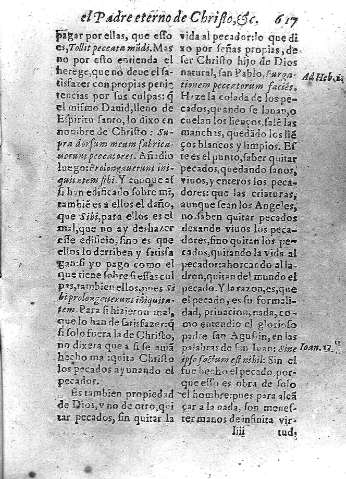 el Padre eterno de Christo, &c. 617
pagar por ellas, que esso
es, Tollit peccata mūdi. Mas
no por esto entienda el
herege, que no deue el sa-
tisfazer con propias peni-
tencias por sus culpas: q̄
el mismo Dauid, lleno de
Espiritu santo, lo dixo en
nombre de Christo: Supra
dorsum meum fabrica-
uerunt peccatores. Añadio
luego: Prolongauerunt ini-
quitatem sibi. Y aunque as-
si han edificado sobre mi,
tambiē es a ellos el daño,
que Sibi, para ellos es el
mal, que no ay deshazer
este edificio, sino es que
ellos lo derriben y satisfa-
gan: si yo pago como el
que tiene sobre si essas cul-
pas, tambien ellos, pues Si-
bi prolongauerunt iniquita-
tem. Para si hizieron mal,
que lo han de satisfazer: q̄
si solo fuera la de Christo,
no dixera que a si se auiā
hecho mal: quita Christo
los pecados ayunando el
pecador.
Es tambien propiedad
de Dios, y no de otro, qui
tar pecados, sin quitar la
vida al pecador: lo que di
xo por señas propias, de
ser Christo hijo de Dios
natural, san Pablo, Purga-
tionem peccatorum faciēs.
Haze la colada de los pe-
cados, quando se lauan, o
cuelan los lienços, salē las
manchas, quedādo los liē-
ços blancos y limpios. Es
te es el punto, saber quitar
pecados, quedando sanos,
viuos, y enteros los peca-
dores: que las criaturas,
aunque sean los Angeles,
no saben quitar pecados
dexande viuos los peca-
dores, sino quitan los pe-
cados, quitando la vida al
pecador: ahorcando al la-
dron, quitan del mundo el
pecado. Y la razon, es, que
el pecado, es su formali-
dad, priuacion, nada, co-
mo entendio el glorioso
padre san Agustin, en las
palabras de san Iuan: Sine
ipso factum est nihil: Sin el
fue hecho el pecado por-
que esso es obra de solo
el hombre: pues para alcā
çar a la nada, son menes-
ter manos de infinita vir-
Iiii tud,
Ad Heb. 1.
Ioan. 1.